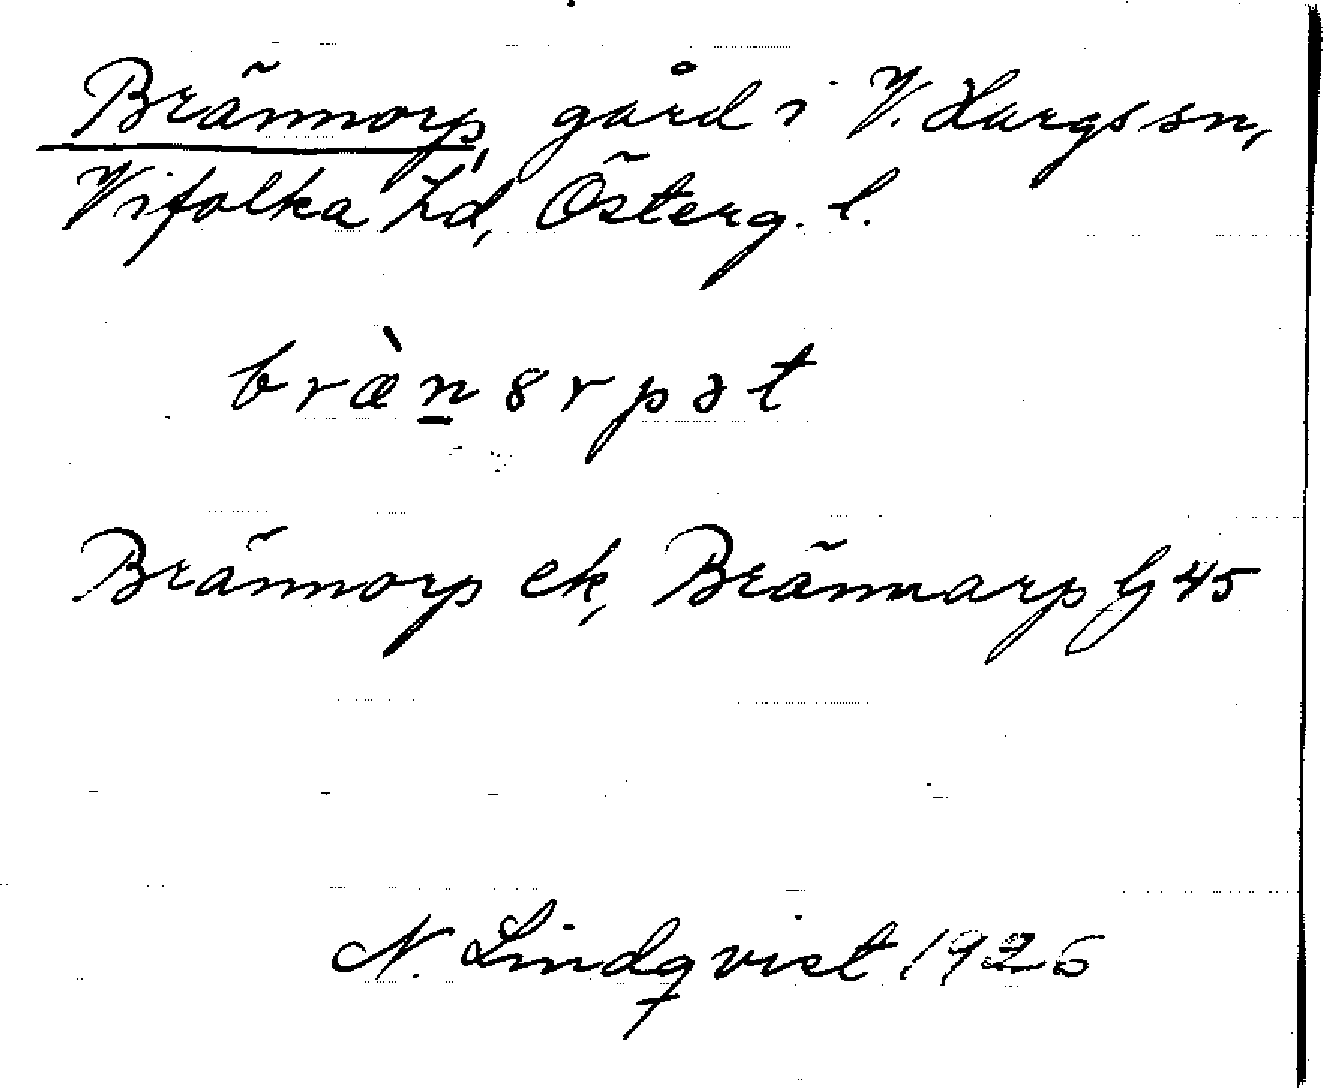 Brännorp, gård i V. Hargs sn,
Vifolka hd, Österg. l.
bræ̀n8rpət
Brännorp ek, Brännarp G 45
N. Lindqvist 1926